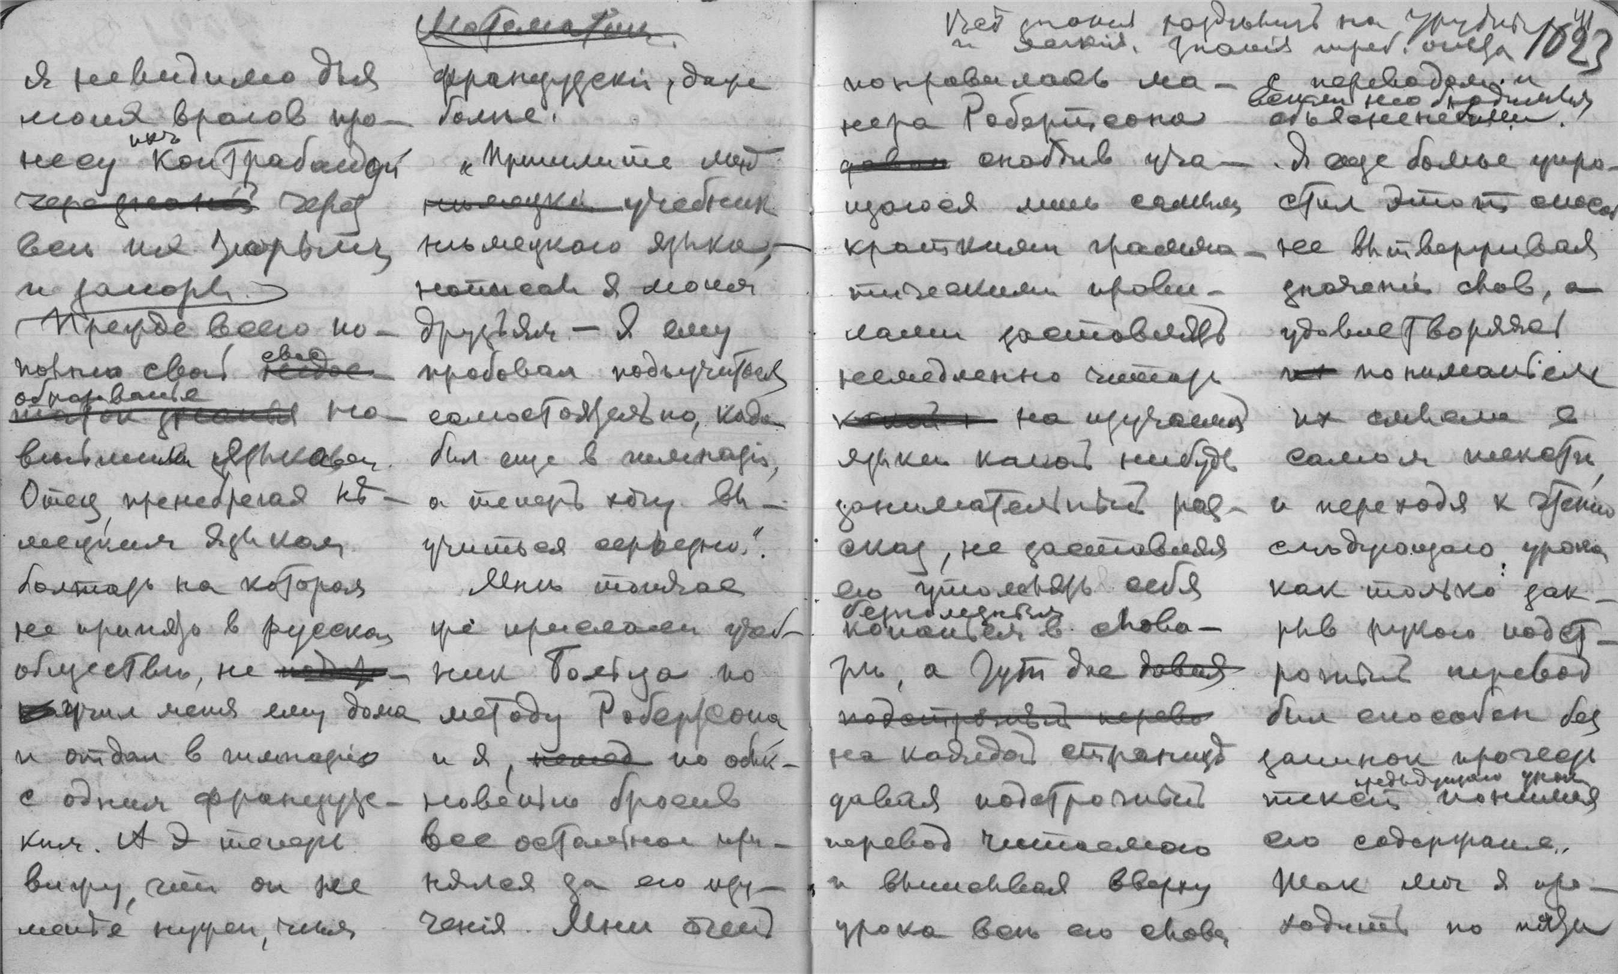 Математика
я невидимо для
моих врагов про-
несу их контрабандой
через
весь их
и
Прежде всего по-
полню свое
образованье но-
выми языками.
Отец, пренебрегая нѣ-
мецким языком,
болтать на котором
не принято в русском
обществѣ, не
учил меня ему дома
и отдал в гимназію
с одним французс-
ким. А я теперь
вижу, что он не
менѣе нужен, чѣм
французскій, даже
болѣе.
„Пришлите мнѣ
учебник
нѣмецкаго языка, —
написал я моим
друзьям — Я ему
пробовал подъучиться
самостоятельно, когда
был еще в гимназіи,
а теперь хочу вы-
учиться серьезно".
Мнѣ тотчас
же прислали учеб-
ник Больца по
методу Робертсона
и я, по обык-
новенію бросив
все остальное при-
нялся за его изу-
ченіе. Мнѣ очень
1023
понравилась ма-
нера Робертсона
снабдив уча-
щагося лишь самыми
краткими грамма-
тическими прави-
лами заставлять
немедленно читать
на изучаемом
языке какой нибудь
занимательный раз-
сказ, не заставляя
его утомлять себя
безполезным
копаньем в слова-
рѣ, а тут же
на каждой страницѣ
давая подстрочный
перевод читаемого
и выписывая вверху
урока всѣ его слова
с переводом и
всеми необходимыми
объясненьями.
Я еще больше упро-
стил этот способ
не вытверживая
значений слов, а
удовлетворяясь
пониманьем
их смысла в
самом тексте,
и переходя к чтению
слѣдующаго урока
как только зак-
рыв рукою подст-
рочный перевод
был способен без
запинок прочесть
текст предыдущаго урока понимая
его содержание.
Так мог я про-
ходить по пяти